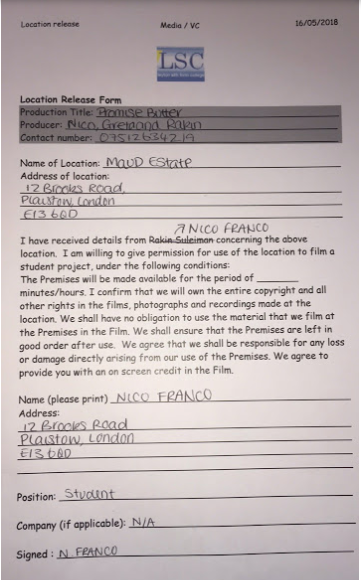 Location release
Media / VC
16/05/2018
LSC
Location Release Form
Production Title: Promise Butter
Producer: Nico, Greg and Rakin
Contact number: 07512634219
Name of Location: MAUD EState
Address of location:
12 Brooks Road,
Plaistow, London
E13 6QD
NICO FRANCO
I have received details from Rakin Suleiman concerning the above
location. I am willing to give permission for use of the location to film a
student project, under the following conditions:
The Premises will be made available for the period of ______
minutes/hours. I confirm that we will own the entire copyright and all
other rights in the films, photographs and recordings made at the
location. We shall have no obligation to use the material that we film at
the Premises in the Film. We shall ensure that the Premises are left in
good order after use. We agree that we shall be responsible for any loss
or damage directly arising from our use of the Premises. We agree to
provide you with an on screen credit in the Film.
Name (please print) NICO FRANCO
Address:
12 Brooks Road
Plaistow, London
E13 6QD
Position: Student
Company (if applicable): N/A
Signed : N FRANCO